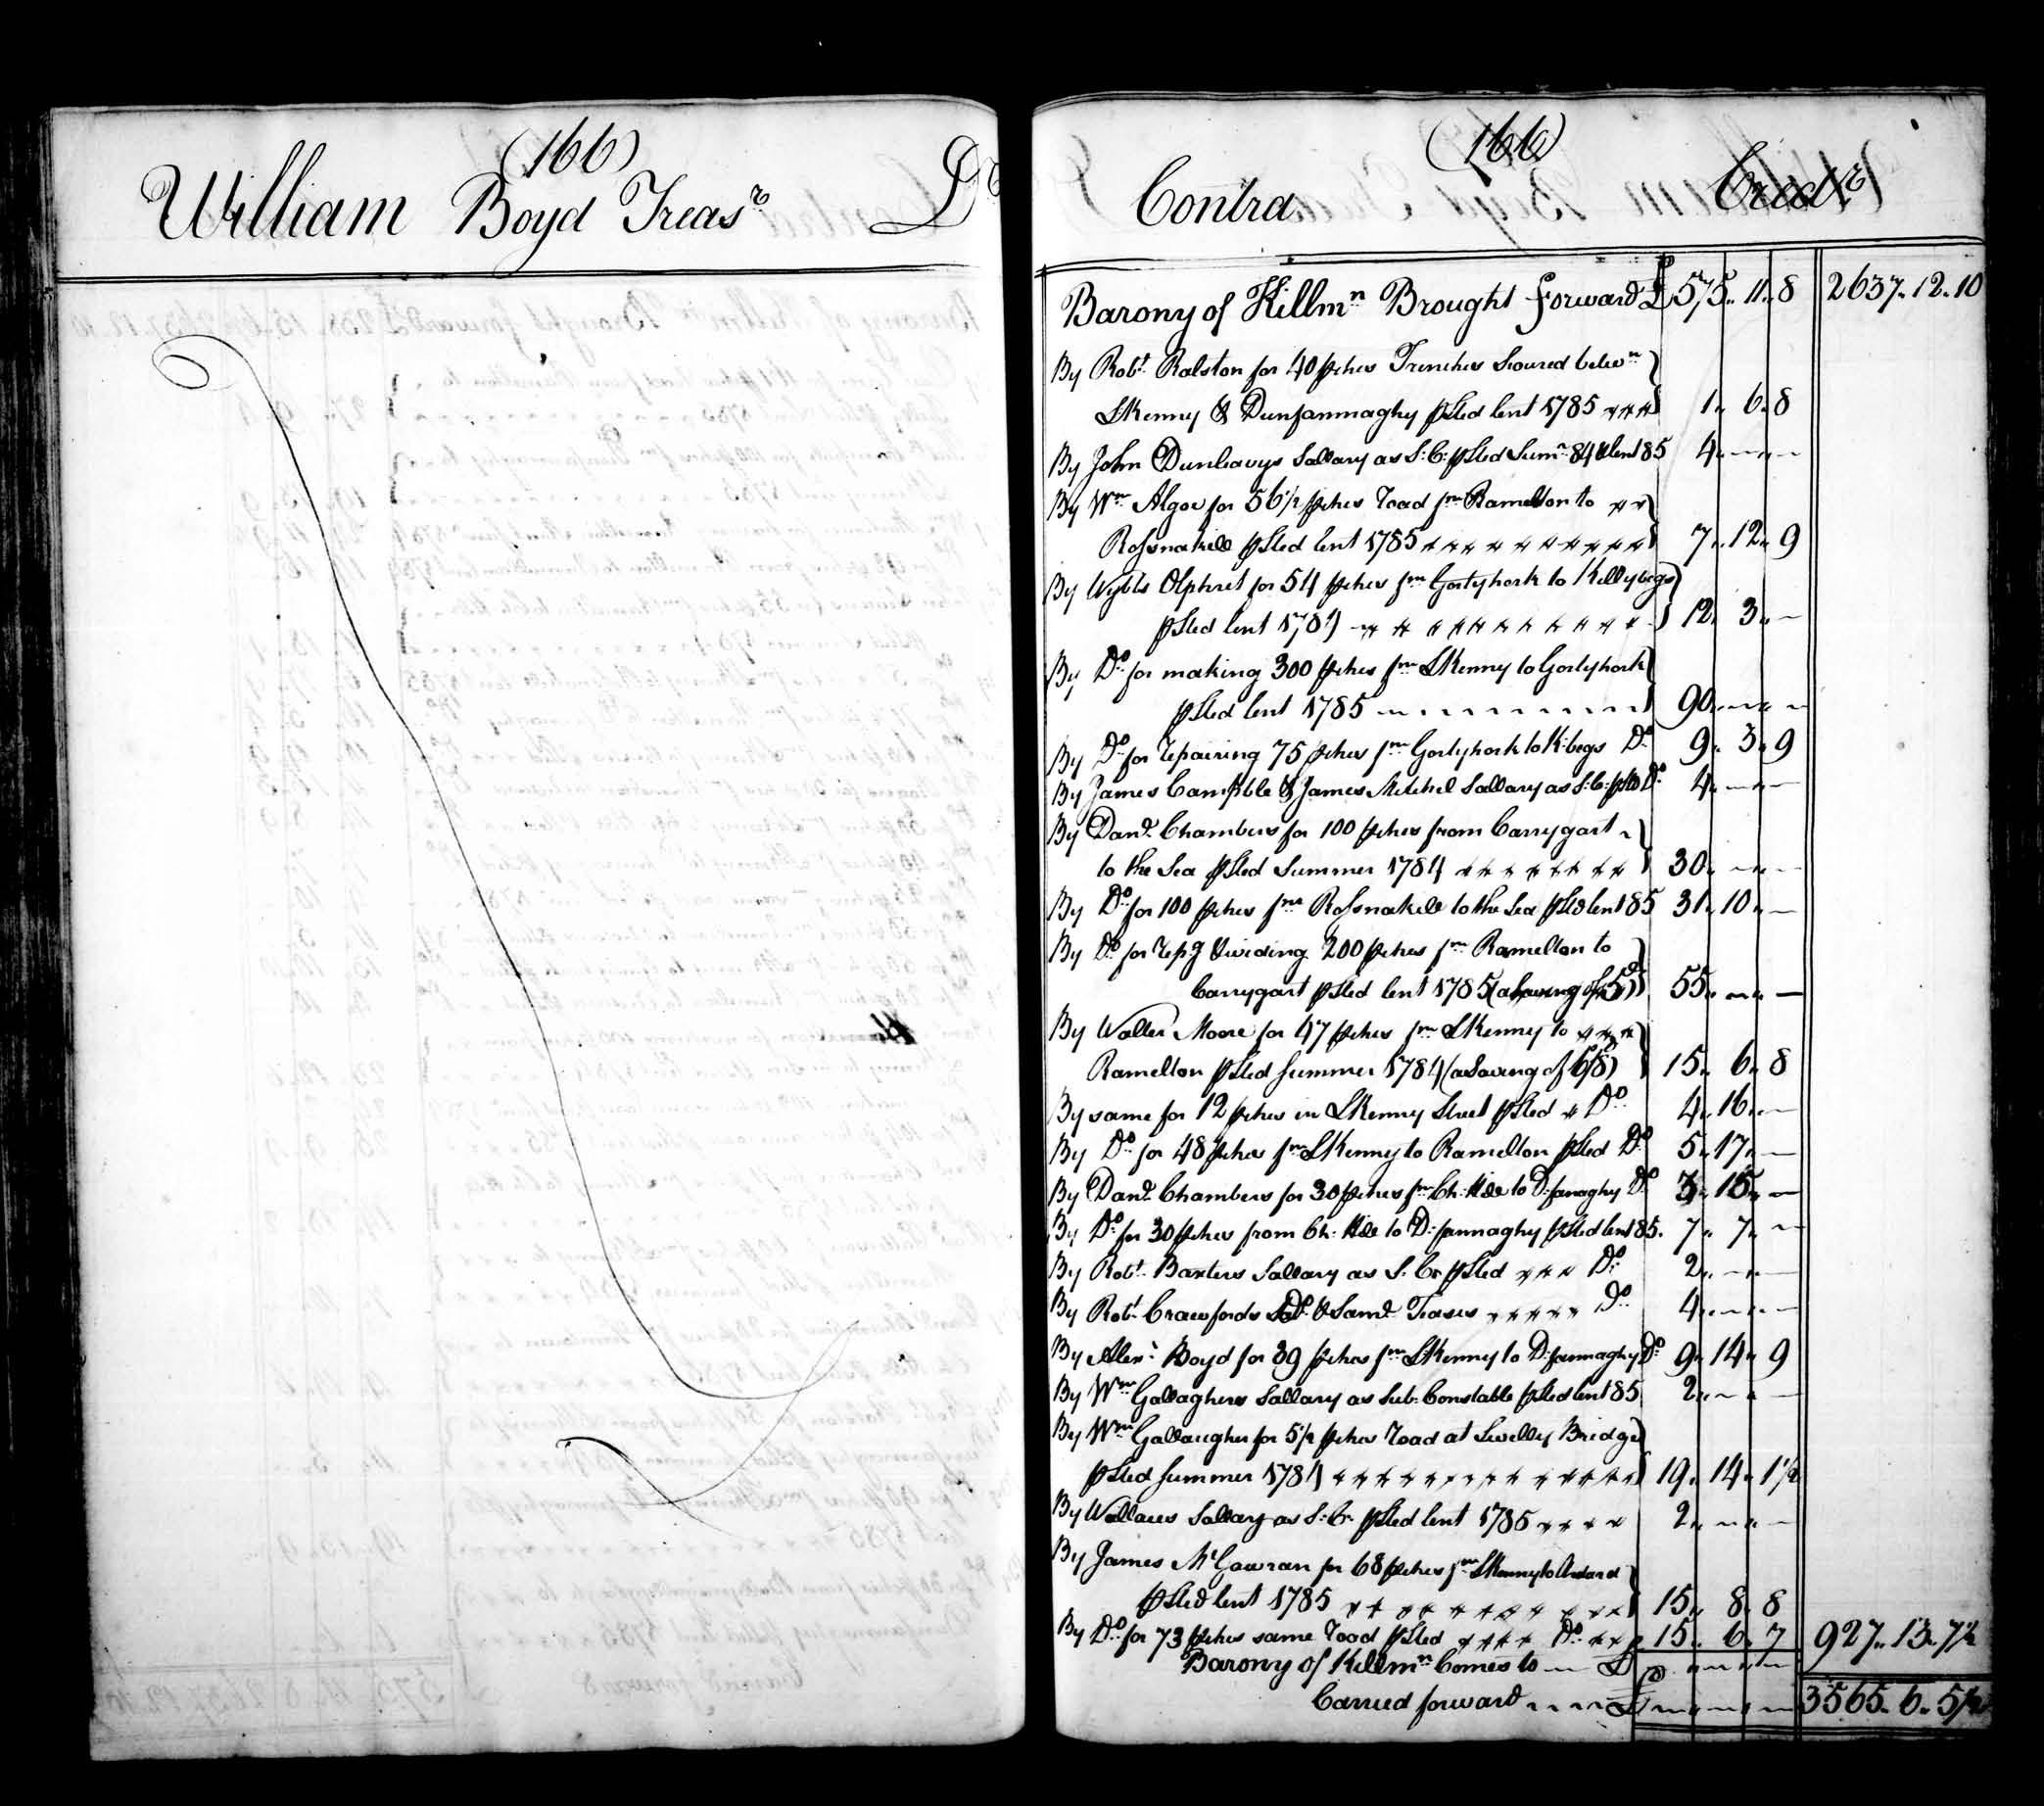 (166)
William Boyd Treasr. Dr
(166)
Contra Credtr
Barony of Killmn Brought forward £ 575.. 11.. 8 2637.. 12.. 10
By Robt Ralston for 40 pches Trenches Scoured betwn
LKenny & Dunfannaghy psted lent 1785 1.. 6.. 8
By John Dunleavys Sallary as S: C: psted Sumr 84 & lent 85 4.. — —
By Wm Algoe for 56 1/2 pches road fm Ramelton to
Rossnakill psted lent 1785 7.. 12.. 9
By Wybts Olphret for 54 pches fm Gortyhork to Killybegs
psted lent 1784 12.. 3.. —
By Do for making 300 pches fm LKenny to Gortyhork
psted lent 1785 90.. — —
By Do for repairing 75 pches fm Gortyhork to K:begs Do 9.. 3.. 9
By James Campble & James Mitchel Sallary as S: C: psted Do 4.. — —
By Danl Chambers for 100 pches from Carrygart
to the Sea psted Summer 1784 30.. — —
By Do for 100 pches fm Rossnakill to the Sea psted lent 85 31.. 10.. —
By Do for repg & widing 200 pches fm Ramelton to
Carrygart psted lent 1785 (a Saving of 5d) 55.. — —
By Walter Moore for 47 pches fm LKenny to
Ramelton psted Summer 1784 (a Saving of 6/8) 15.. 6.. 8
By same for 12 pches in LKenny Street psted Do 4.. 16.. —
By Do for 48 pches fm LKenny to Ramelton psted Do 5.. 17.. —
By Danl Chambers for 30 pches fm Ch: Hill to D:fanaghy Do 3.. 15.. —
By Do for 30 pches from Ch: Hill to D:fannaghy psted lent 85. 7.. 7.. —
By Robt Baxters Sallary as S. C: psted Do 2.. — —
By Robt Crawfords Do & Saml Teases Do 4.. — —
By Alexr Boyd for 39 pches fm LKenny to D:fannaghy Do 9.. 14.. 9
By Wm Gallaghers Sallary as Sub: Constable psted lent 85 2.. — —
By Wm Gallaugher for 5 1/2 pches road at Swelly Bridge
psted Summer 1784 19.. 14.. 1 1/2
By Wallaces Sallary as S: C: psted lent 1785 2.. — —
By James McGowran for 68 pches fm LKenny to
psted lent 1785 15.. 8.. 8
By Do for 73 pches same road psted Do 15.. 6.. 7 927.. 13.. 7 1/2
Barony of Killmn Comes to £
Carried forward £ 3565.. 6.. 5 1/2